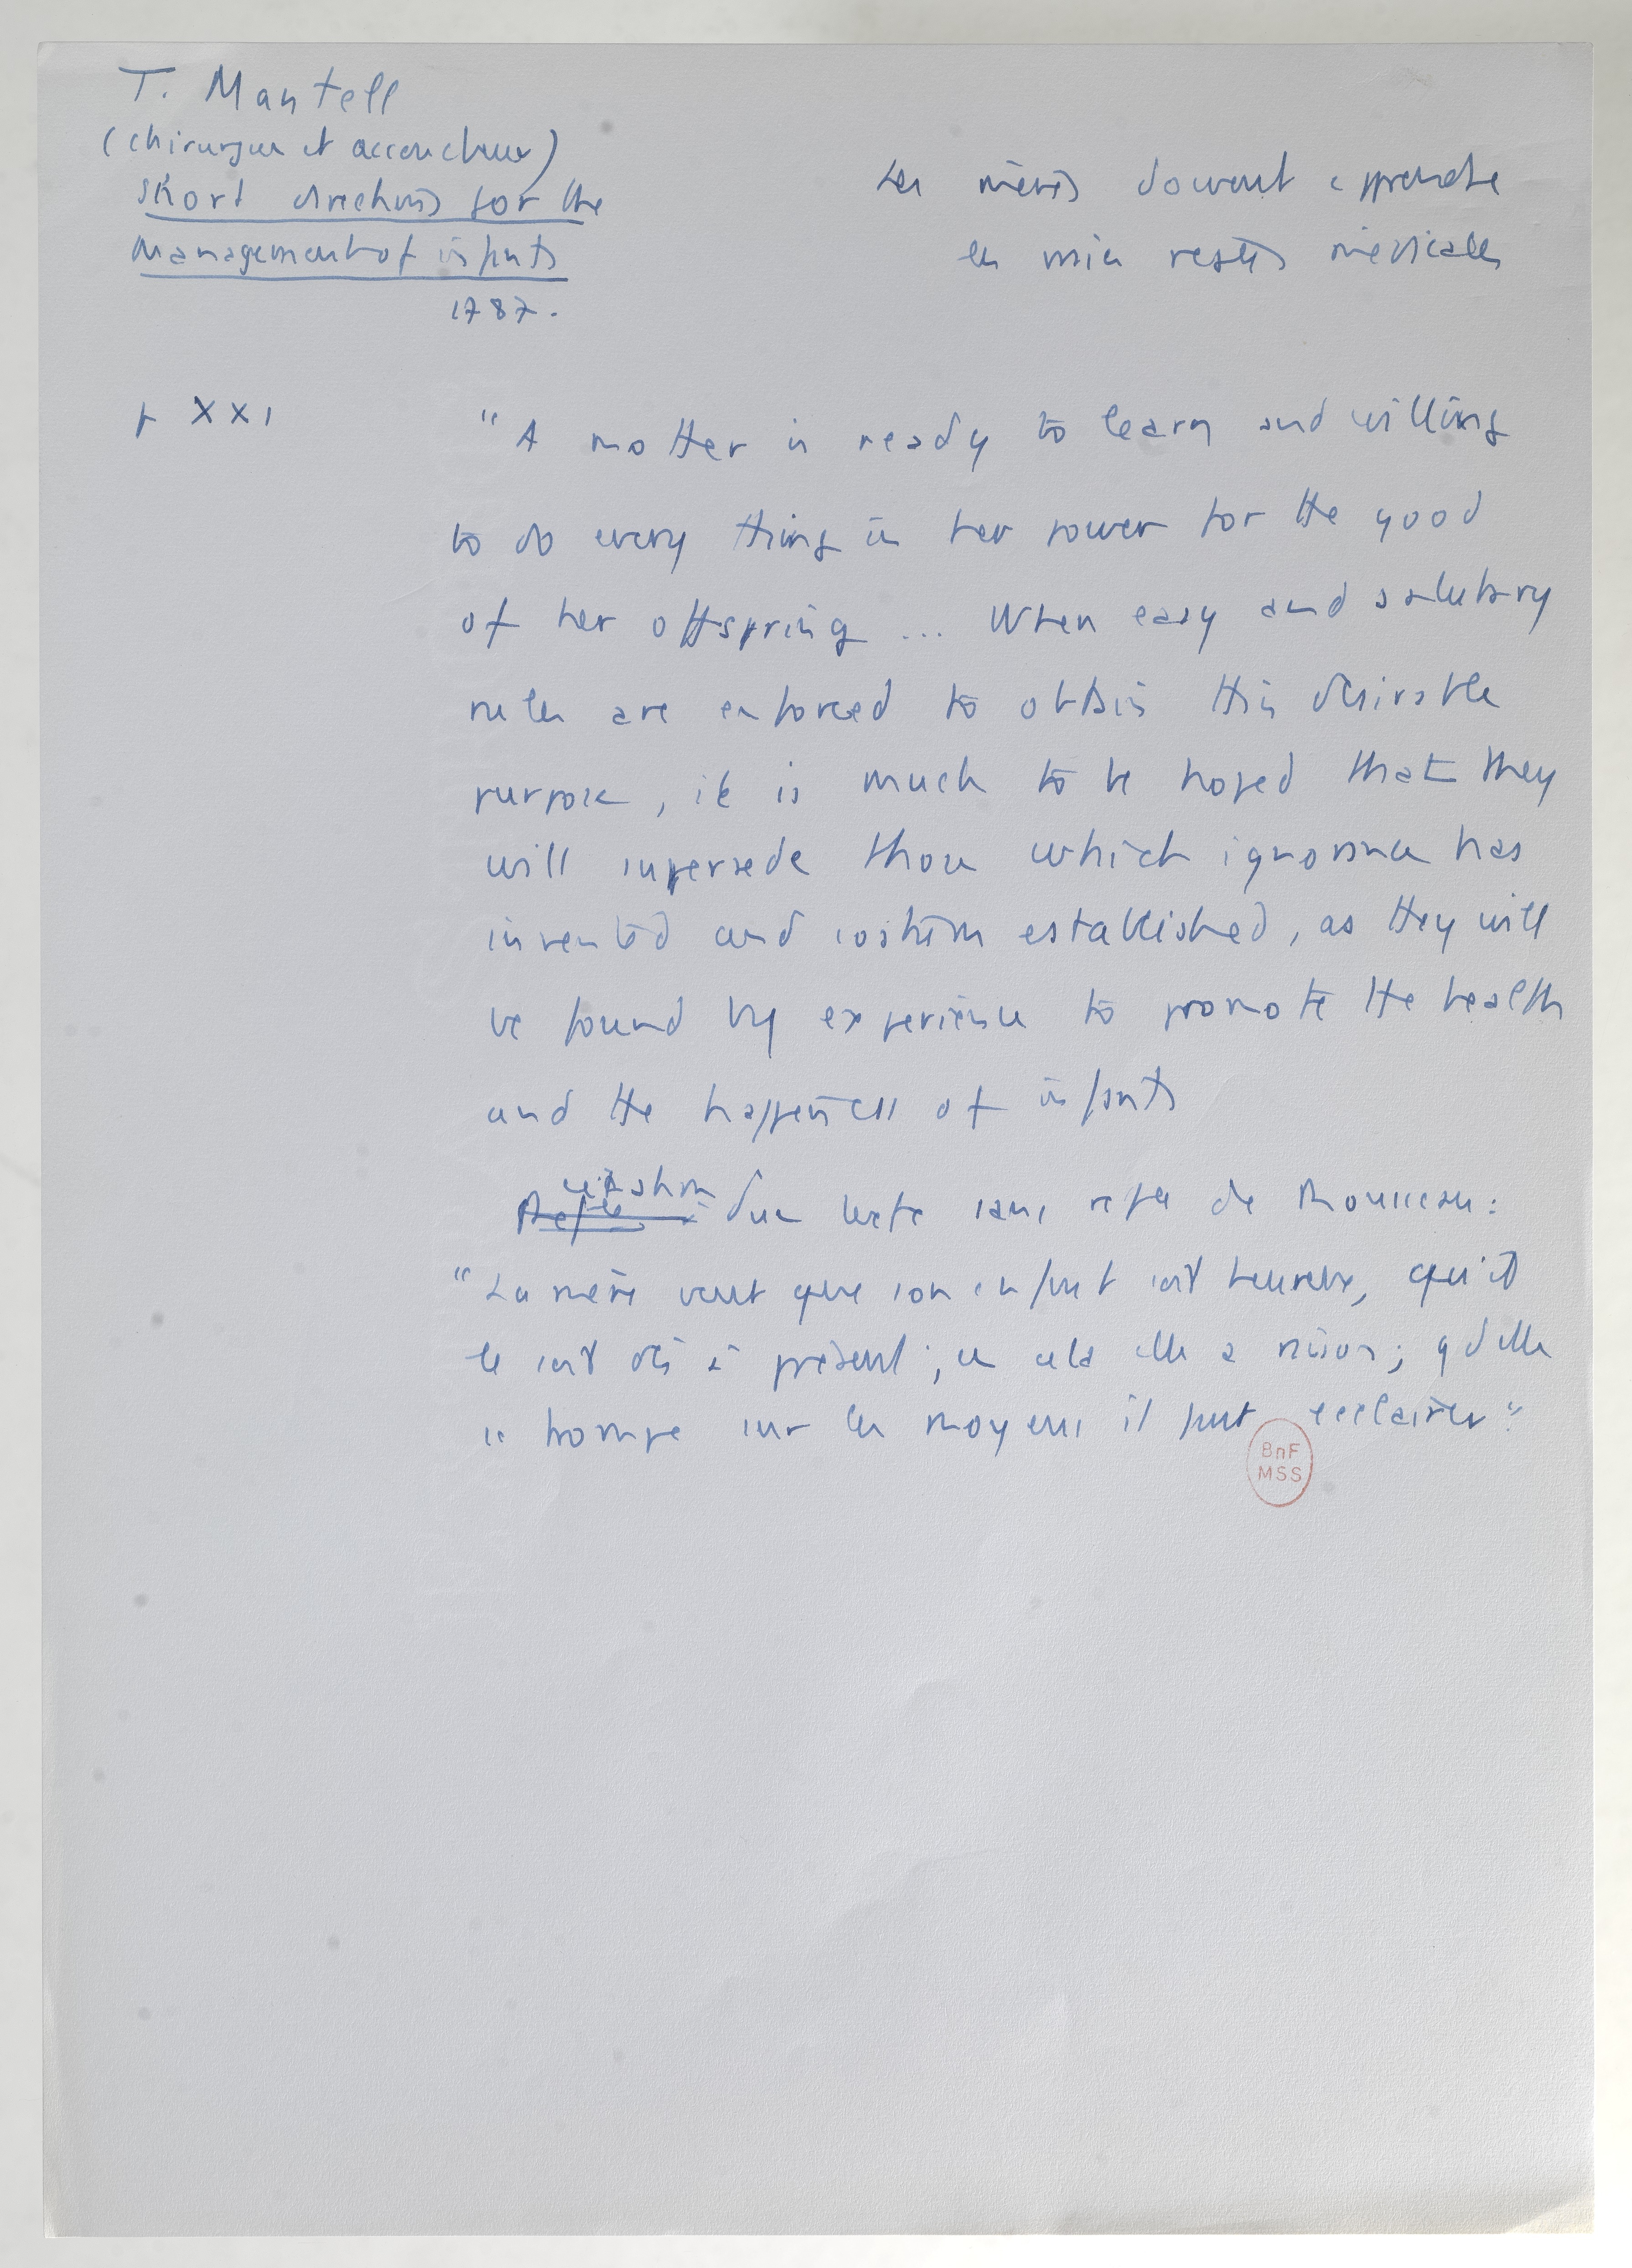 T. Mantell
(chirurgien et accoucheur)
Short directions for the
Management of infants
1787.
Les mères doivent apprendre
les vraies règles médicales
p XXI
"A mother is ready to learn and willing
to do every thing in her power for the good
of her offspring ... When easy and salutary
rules are enforced to obtain this desirable
purpose, it is much to be hoped that they
will supersede those which ignorance has
invented and custom established, as they will
be found by experience to promote the health
and the happiness of infants
citation d'un texte sans réfce de Rousseau :
"La mère veut que son enfant soit heureux, qu'il
le soit dès à présent ; en cela elle a raison ; qd elle
se trompe sur les moyens il faut l'éclairer"
BnF
MSS